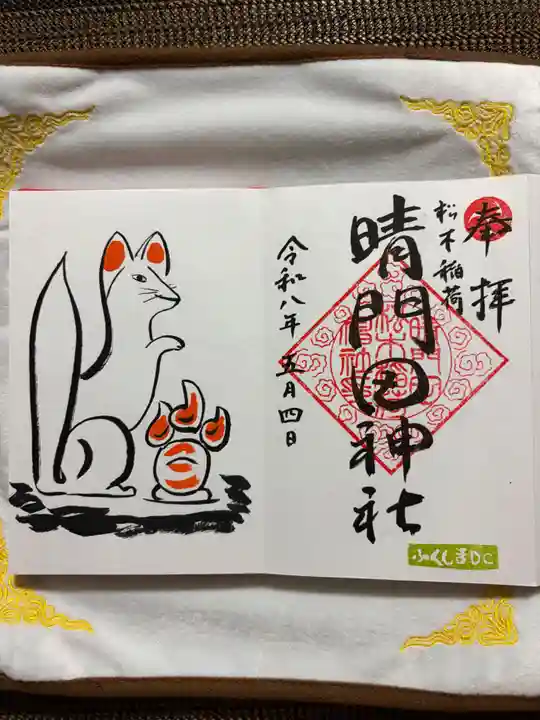 奉拝
松木稲荷
晴門田神社
令和八年 五月四日
ふくしまDC